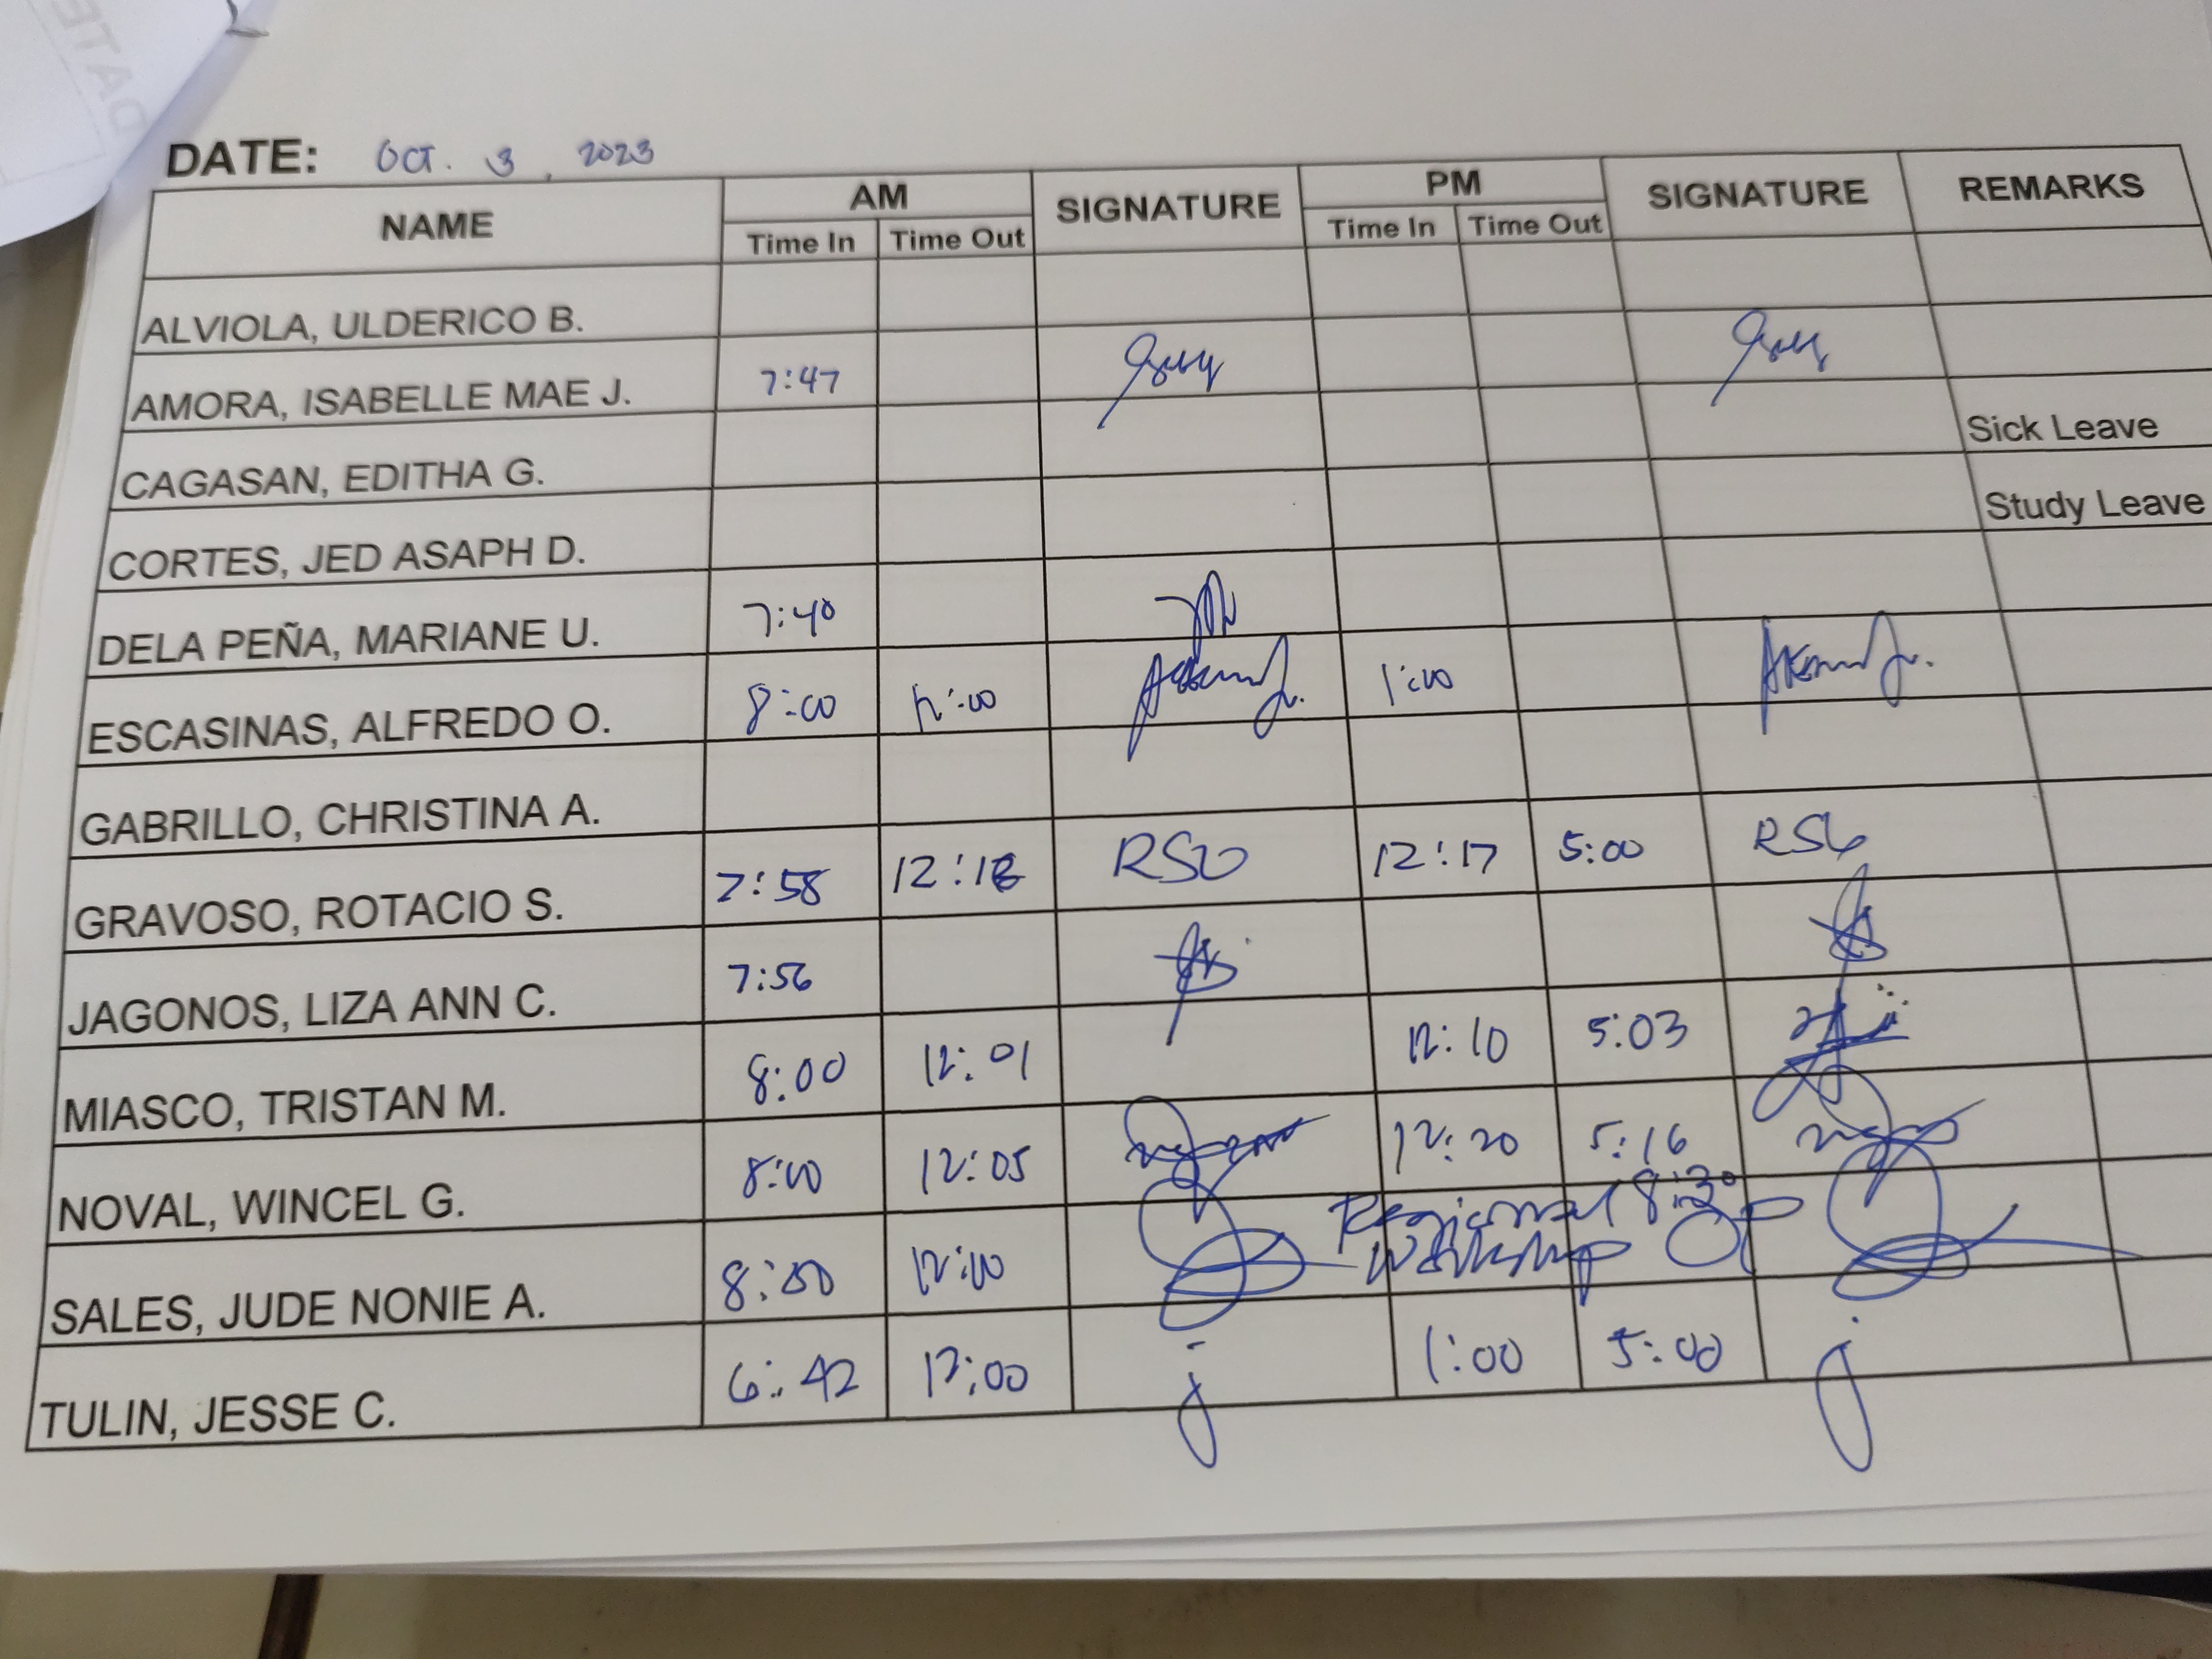 DATE: Oct. 3, 2023
NAME AM SIGNATURE PM SIGNATURE REMARKS
Time In Time Out Time In Time Out
ALVIOLA, ULDERICO B.
AMORA, ISABELLE MAE J. 7:47
CAGASAN, EDITHA G. Sick Leave
CORTES, JED ASAPH D. Study Leave
DELA PEÑA, MARIANE U. 7:40
ESCASINAS, ALFREDO O. 8:00 12:00 1:00
GABRILLO, CHRISTINA A.
GRAVOSO, ROTACIO S. 7:58 12:16 RSG 12:17 5:00 RSG
JAGONOS, LIZA ANN C. 7:56
MIASCO, TRISTAN M. 8:00 12:01 12:10 5:03
NOVAL, WINCEL G. 8:00 12:05 12:20 5:16
SALES, JUDE NONIE A. 8:00 12:00 Regional 8:30
Workshop
TULIN, JESSE C. 6:42 12:00 j 1:00 5:00 j
DATE